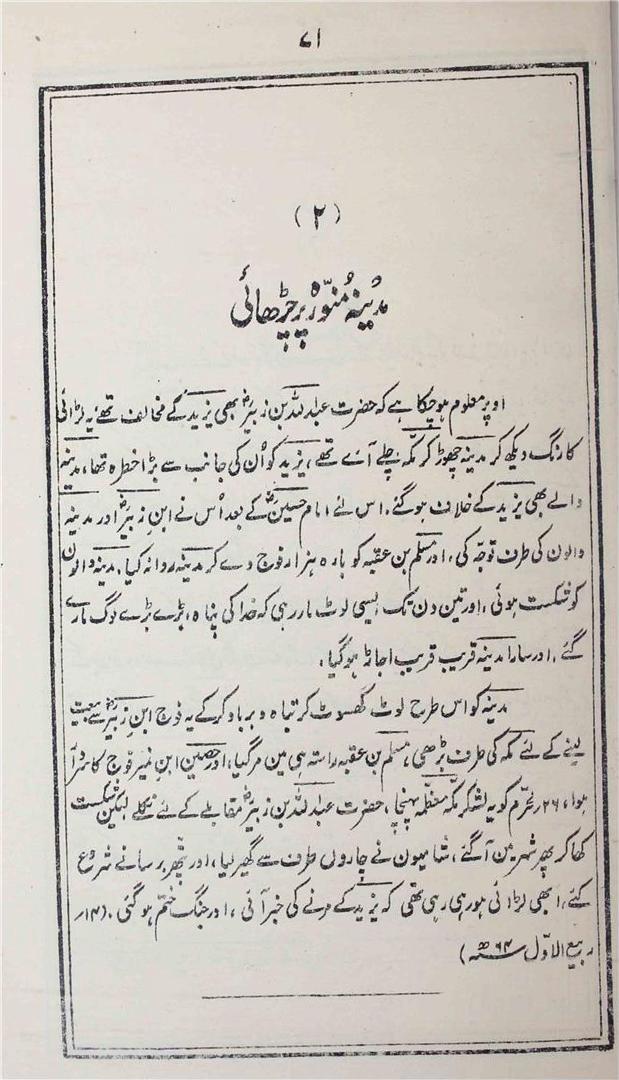 ۷۱
(۲)
مدینہ منورہ پر چڑھائی
اوپر معلوم ہوچکا ہے کہ حضرت عبداللہ بن زبیرؓ بھی یزید کے مخالف تھے یہ لڑائی
کا رنگ دیکھ کر مدینہ چھوڑ کر مکّہ چلے آئے تھے، یزید کو اُن کی جانب سے بڑا خطرہ تھا، مدینہ
والے بھی یزید کے خلاف ہوگئے. اس لئے امام حسینؓ کے بعد اُس نے ابن زبیرؓ اور مدینہ
والون کی طرف توجّہ کی، اور مسلم بن عقبہ کو بارہ ہزار فوج دے کر مدینہ روانہ کیا. مدینہ والون
کو شکست ہوئی، اور تین دن تک ایسی لوٹ مار رہی کہ خدا کی پناہ، بڑے بڑے لوگ مارے
گئے. اور سارا مدینہ قریب قریب اجاڑ ہوگیا.
مدینہ کو اس طرح لوٹ کھسوٹ کر تباہ و برباد کرکے یہ فوج ابن زبیرؓ سے بیعت
لینے کے لئے مکہ کی طرف بڑھی، مسلم بن عقبہ راستہ ہی مین مرگیا، اور حصین ابن نمیر فوج کا سردار
ہوا، ۲۶؍ محرّم کو یہ لشکر مکّہ معظّمہ پہنچا، حضرت عبداللہ بن زبیرؓ مقابلے کے لئے نکلے لیکن شکست
کھا کر پھر شہر مین آگئے، شامیون نے چارون طرف سے گھیر لیا، اور پتّھر برسانے شروع
کئے. ابھی لڑائی ہو رہی رہی تھی کہ یزید کے مرنے کی خبر آئی، اور جنگ ختم ہوگئی. (۱۴؍
ربیع الاوّل ۶۴ھ)